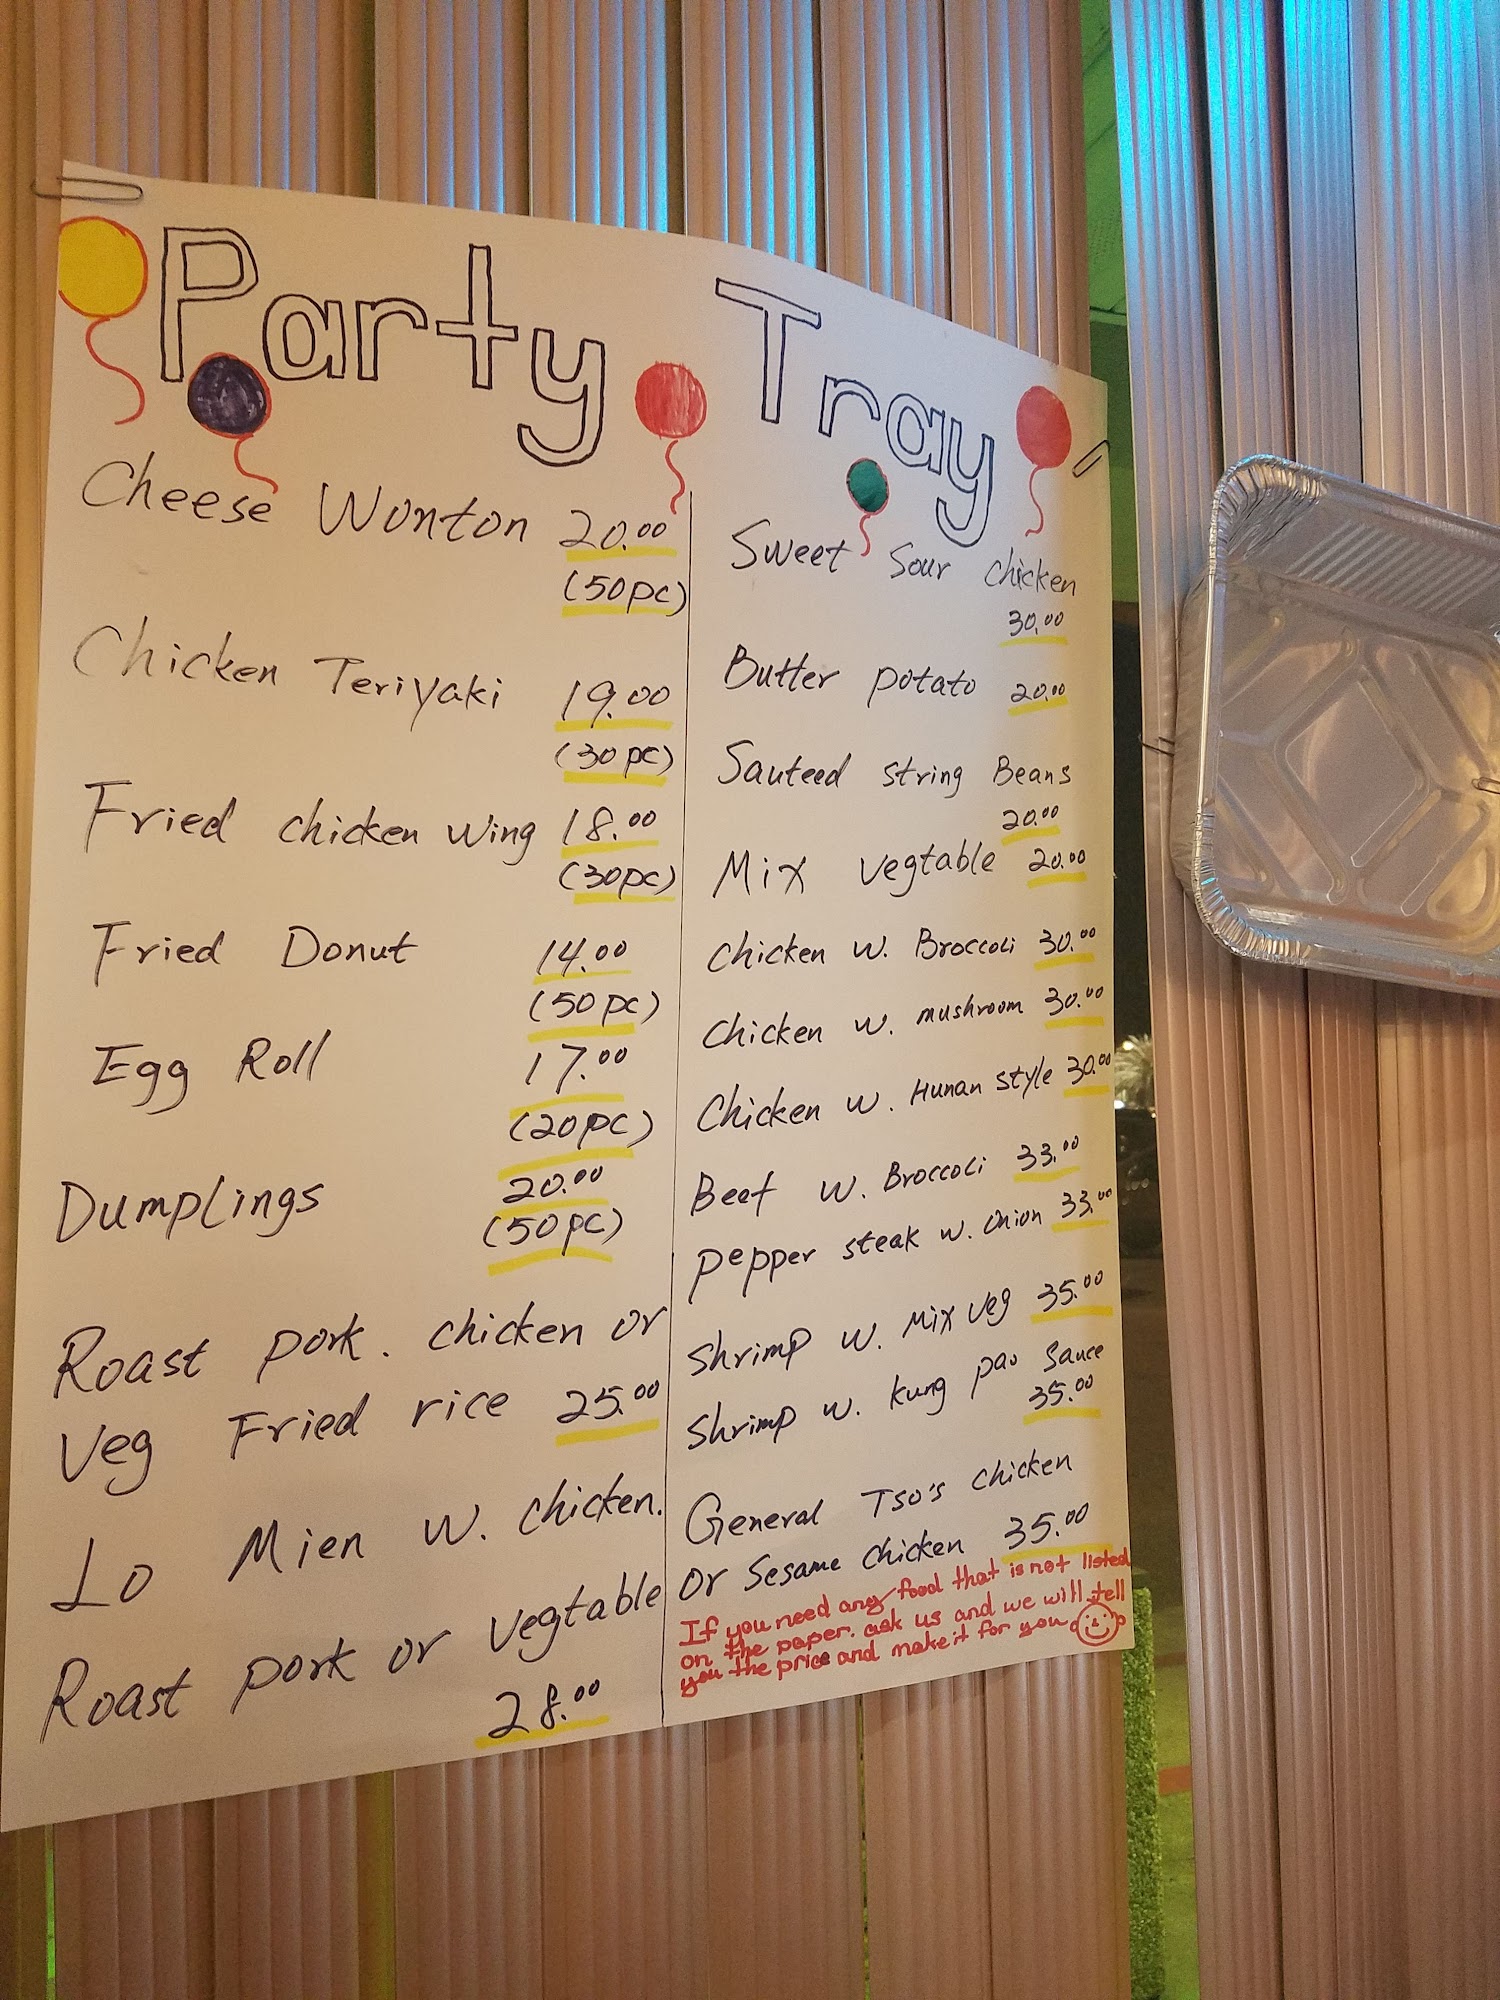 Party Tray
Cheese Wonton 20.00
(50pc)
Chicken Teriyaki 19.00
(30pc)
Fried chicken wing 18.00
(30pc)
Fried Donut 14.00
(50pc)
Egg Roll 17.00
(20pc)
Dumplings 20.00
(50pc)
Roast pork. chicken or
Veg Fried rice 25.00
Lo Mien w. chicken.
Roast pork or vegtable
28.00
Sweet Sour chicken
30.00
Butter potato 20.00
Sauteed string Beans
20.00
Mix vegtable 20.00
chicken w. Broccoli 30.00
chicken w. mushroom 30.00
chicken w. Hunan style 30.00
Beef w. Broccoli 33.00
pepper steak w. onion 33.00
shrimp w. Mix veg 35.00
shrimp w. kung pao sauce
35.00
General Tso's chicken
or sesame chicken 35.00
If you need any food that is not listed
on the paper. ask us and we will tell
you the price and make it for you